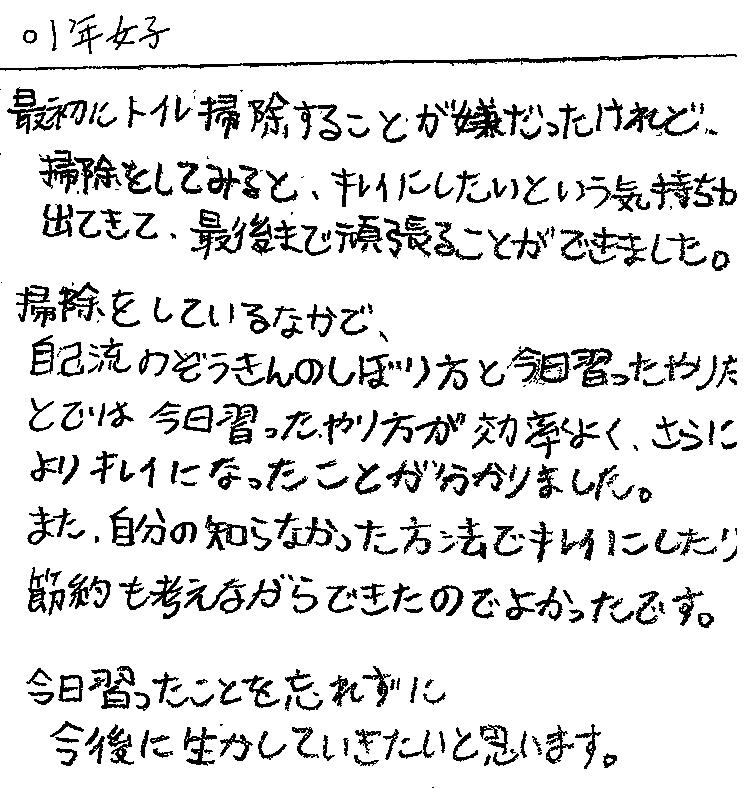 ○1年女子
最初にトイレ掃除することが嫌だったけれど、
掃除をしてみると、キレイにしたいという気持ちが
出てきて、最後まで頑張ることができました。
掃除をしているなかで、
自己流のぞうきんのしぼり方と今日習ったやりた
とでは今日習ったやり方が効率よく、さらに
よりキレイになったことが分かりました。
また、自分の知らなかった方法でキレイにしたり
節約も考えながらできたのでよかったです。
今日習ったことを忘れずに
今後に生かしていきたいと思います。